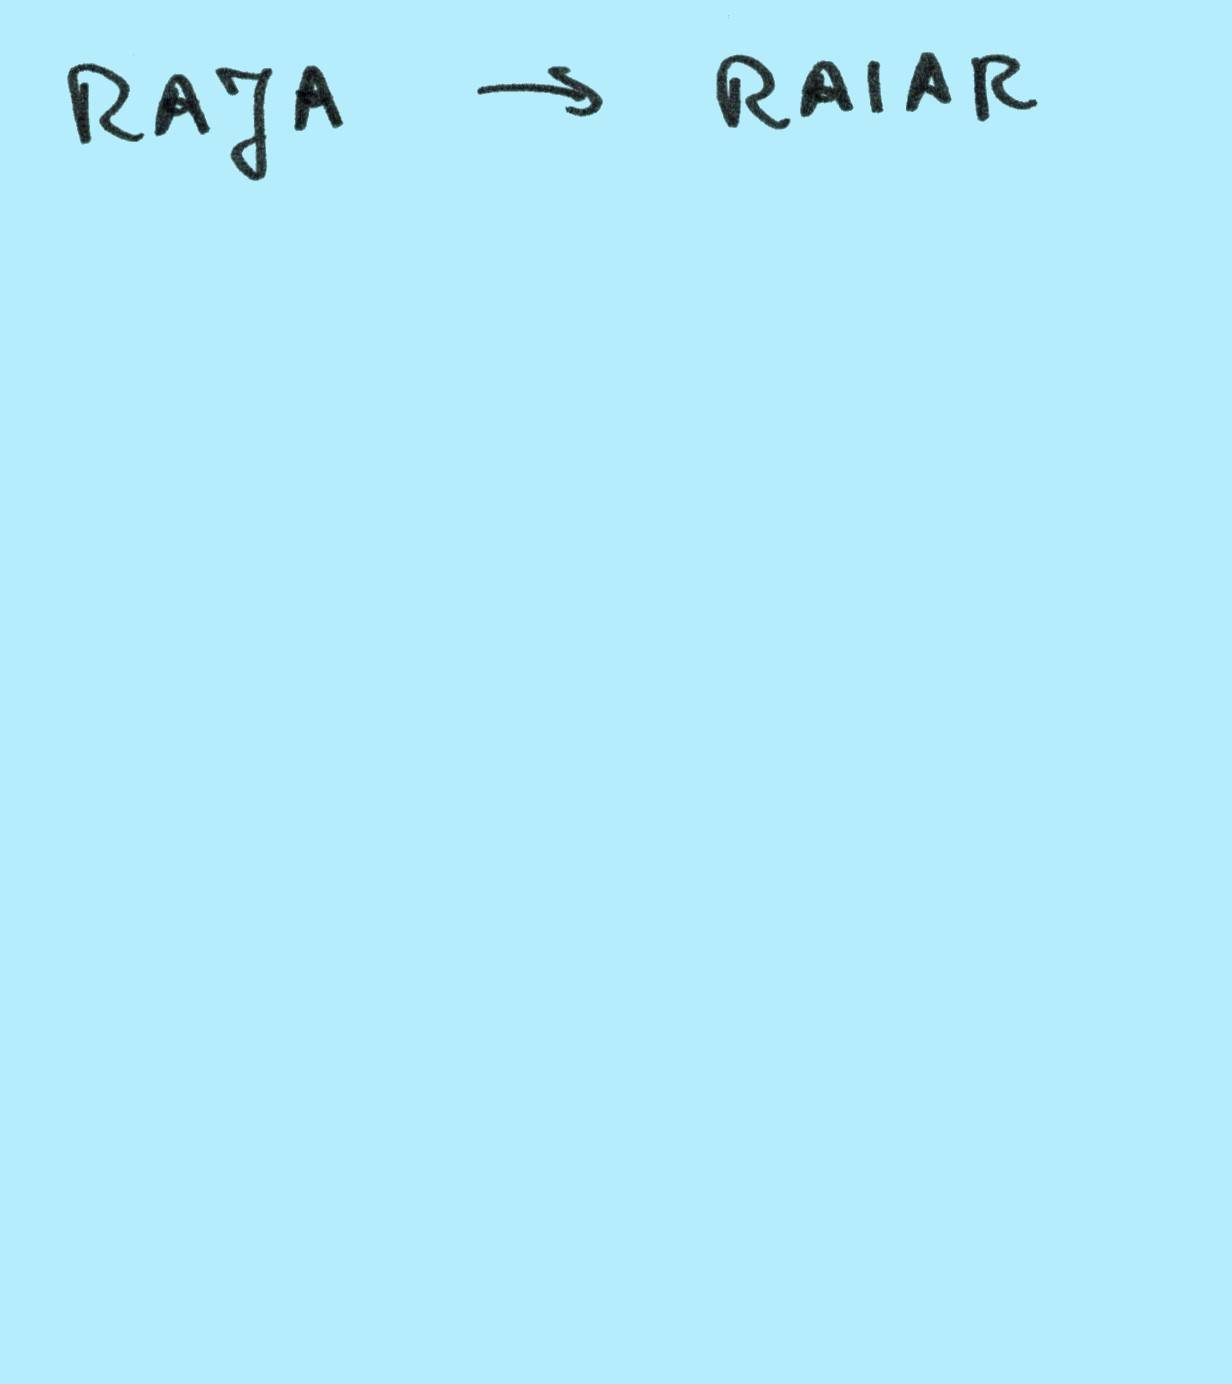 RAJA → RAIAR